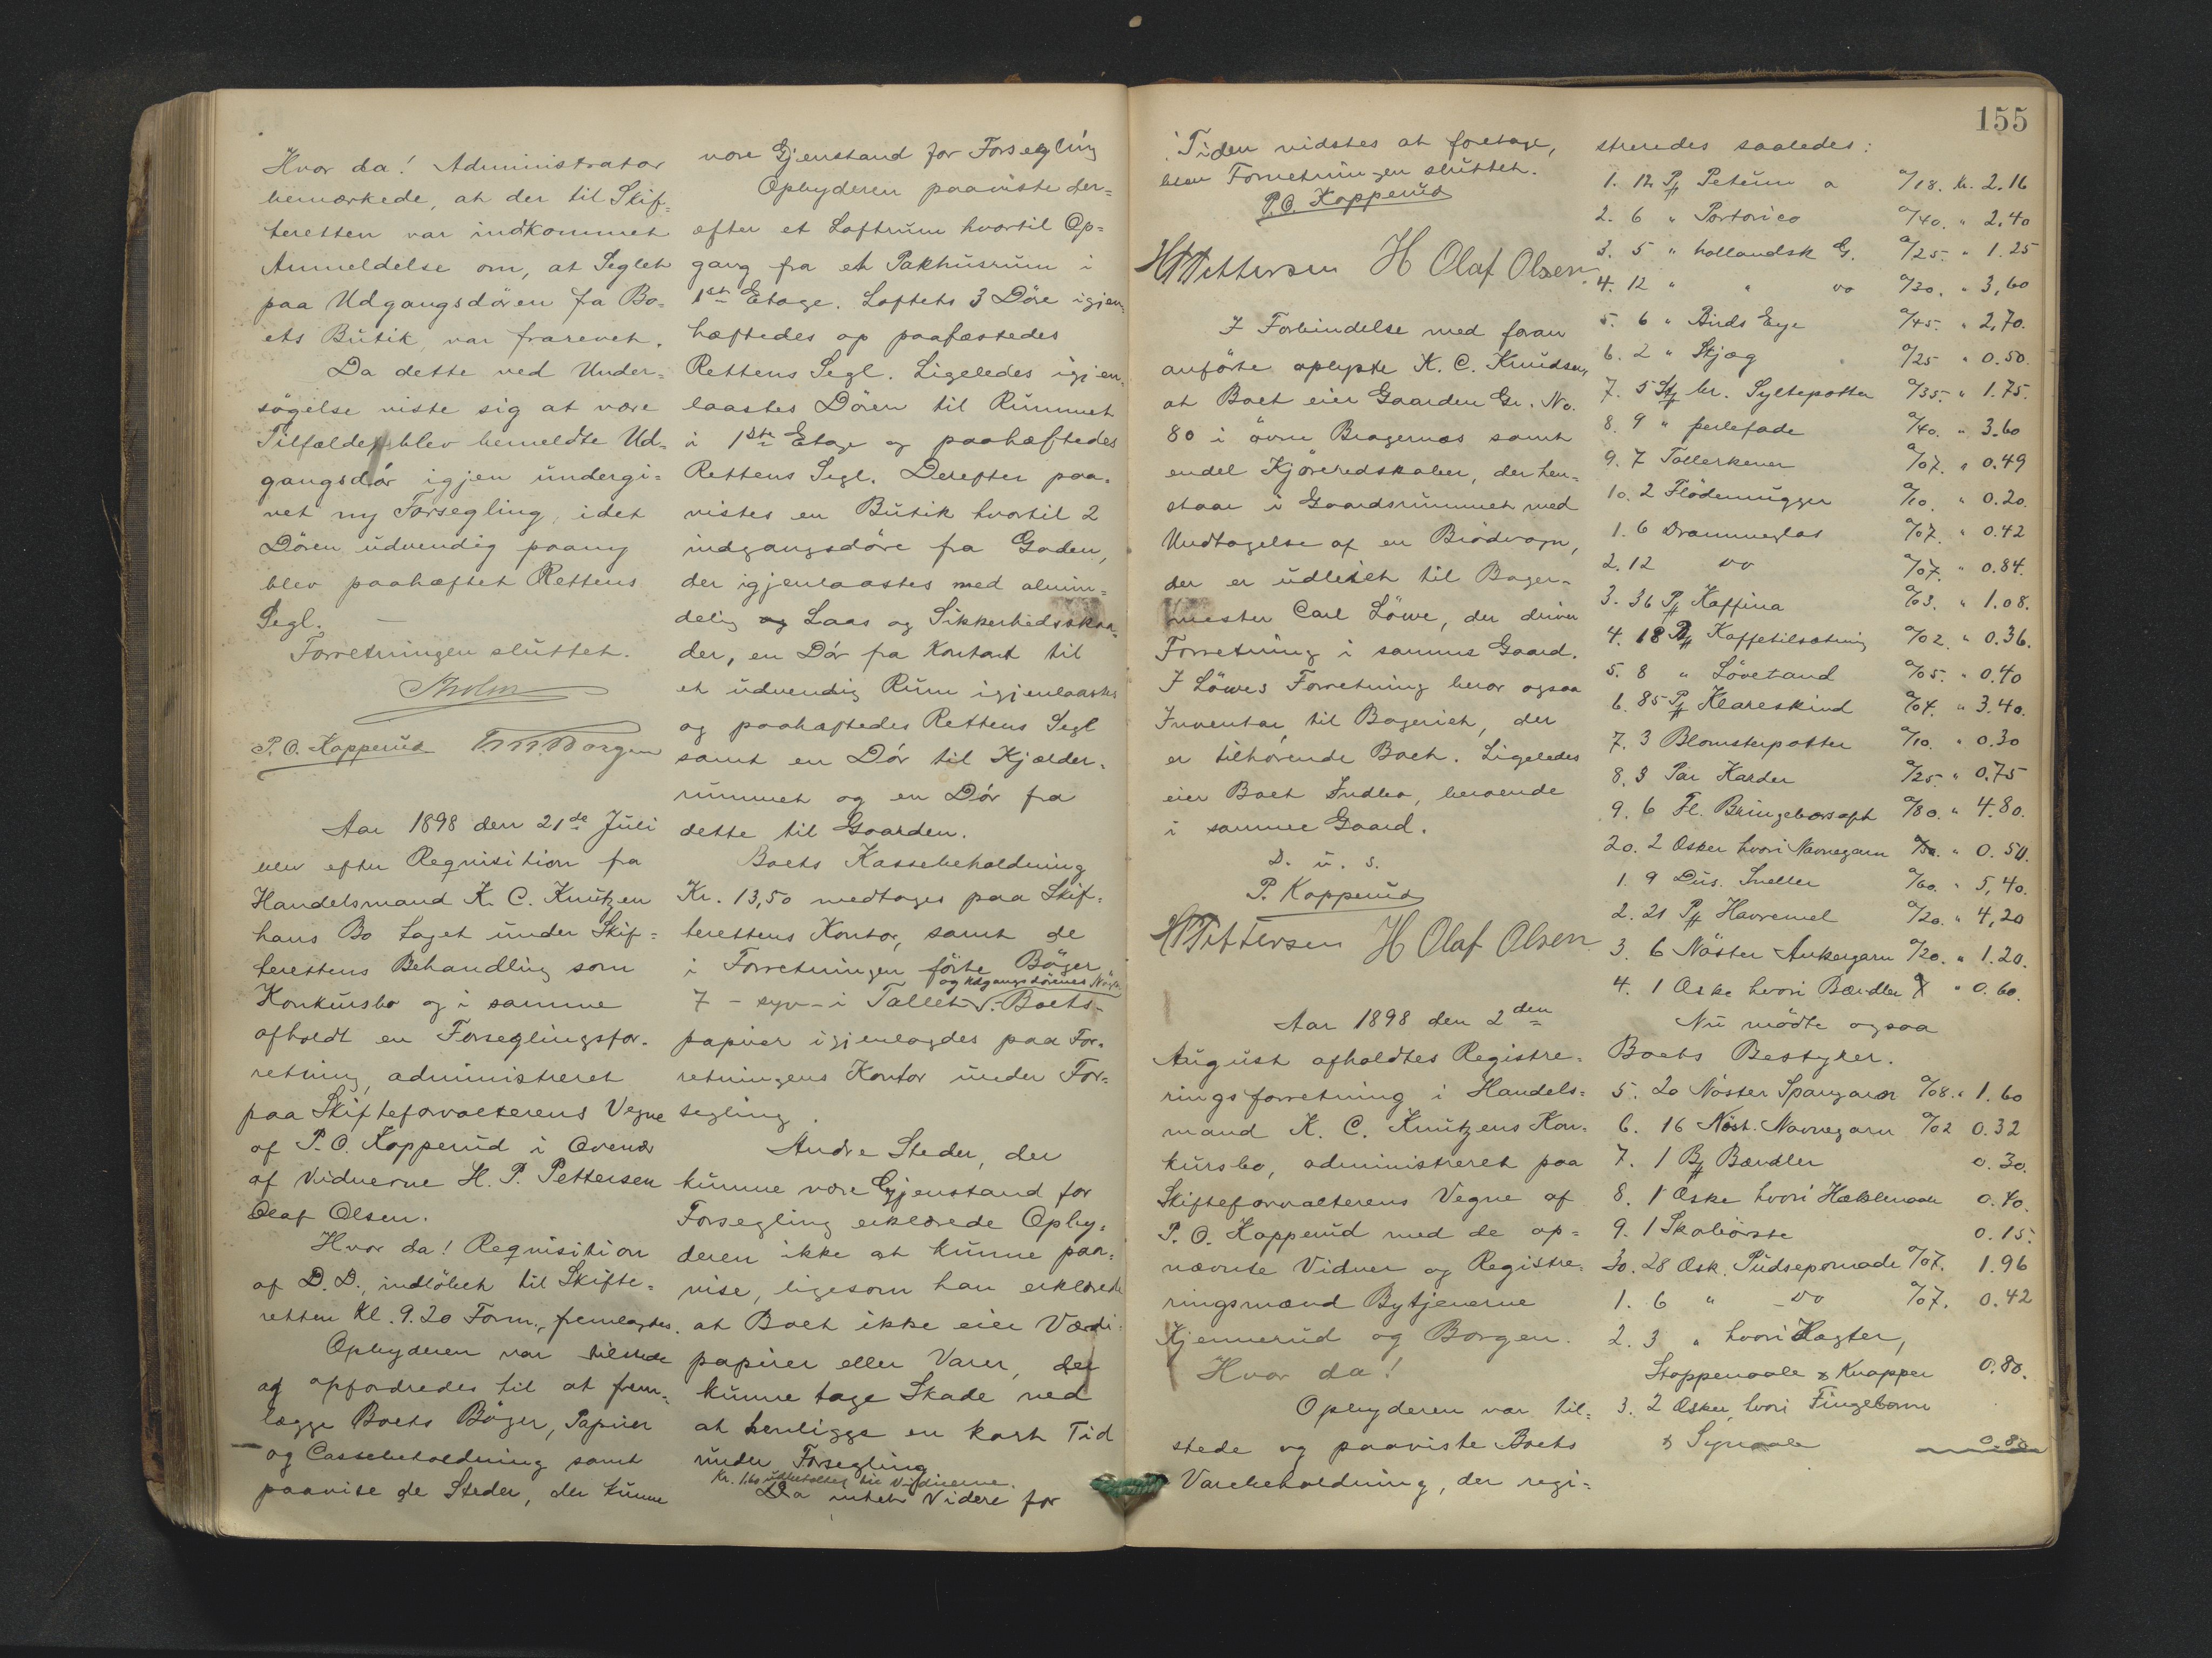 Hvor da! Administrator
bemærkede, at der til Skif=
teretten var indkommet
Anmeldelse om, at Seglet
paa Udgangsdören fa Bo=
ets Butik, var frarevet.
Da dette ved Under=
sögelse viste sig at være
Tilfældet, blev bemeldte Ud=
gangsdör igjen undergi=
vet ny Forsegling, idet
Dören udvendig paany
blev paahæftet Rettens
Segl. —
Forretningen sluttet.
P. O. Kopperud Borgen
Aar 1898 den 21de Juli
blev efter Requisition fra
Handelsmand K. C. Knutzen
hans Bo taget under Skif=
terettens Behandling som
Konkursbo og i samme
afholdt en Forseglingsfor=
retning, administreret
paa Skifteforvalterens Vegne
af P. O. Kopperud i Overvær
af Vidnerne H. P. Pettersen
Olaf Olsen.
Hvor da! Requisition
af D. D., indlöbet til Skifte=
retten Kl. 9.20 Form., fremlagdes.
Opbyderen var tilstede
og opfordredes til at frem=
lægge Boets Böger, Papirer
og Cassebeholdning samt
paavise de Steder, der kunne
være Gjenstand for Forsegling
Opbyderen paaviste der=
efter et Loftrum hvortil Op=
gang fra et Pakhusrum i
1ste Etage. Loftets 3 Döre igjen=
hæftedes op paafæstedes
Rettens Segl. Ligeledes igjen=
laastes Dören til Rummet
i 1ste Etage og paahæftedes
Rettens Segl. Derefter paa=
vistes en Butik hvortil 2
indgangsdöre fra Gaden,
der igjenlaastes med almin=
delig og Laas og Sikkerhedsskaa=
der, en Dör fra Kontort til
et udvendig Rum igjenlaastes
og paahæftedes Rettens Segl
samt en Dör til Kjælder=
rummet og en Dör fra
dette til Gaarden.
Boets Kassebeholdning
Kr. 13,50 medtoges paa Skif=
terettens Kontor, samt de
i Forretningen förte Böger
og Udgangsdörenes Nögle.
7 - syv - i Tallet V. Boets
papirer igjenlagdes paa For=
retningens Kontor under For=
segling.
Andre Steder, der
kunne være Gjenstand for
Forsegling erklærede Opby=
deren ikke at kunne paa=
vise, ligesom han erklærede
at Boet ikke eier Værdi=
papirer eller Varer, der
kunne tage Skade ved
at henligge en kort Tid
under Forsegling
Kr. 1.60 udbetaltes til Vidnerne.
Da intet videre for
155
Tiden vidstes at foretage,
blev Forretningen sluttet.
P. O. Kopperud
HP Pettersen H Olaf Olsen
I Forbindelse med foran
anförte oplyste K. C. Knudsen,
at Boet eier Gaarden Gr. No.
80 i övre Bragernæs samt
endel Kjöreredskaber, der hen=
staar i Gaardsrummet med
Undtagelse af en Brödvogn,
der er udleiet til Bager=
mester Carl Löwe, der driver
Forretning i samme Gaard.
I Löwes Forretning beror ogsaa
Inventar, til Bageriet, der
er tilhörende Boet. Ligeledes
eier Boet Indbo, beroende
i samme Gaard.
D. u. s.
P. Kopperud
HP Pettersen H Olaf Olsen
Aar 1898 den 2den
August afholdtes Registre=
ringsforretning i Handels=
mand K. C. Knutzens Kon=
kursbo, administreret paa
Skifteforvalterens Vegne af
P. O. Kopperud med de op=
nævnte Vidner og Registre=
ringsmænd Bytjenerne
Kjennerud og Borgen.
Hvor da!
Opbyderen var til=
stede og paaviste Boets
Varebeholdning, der regi=
streredes saaledes:
1. 12 P Petum a a/18. Kr. 2.16
2. 6 " Portorico a/40. " 2.40
3. 5 " hollandsk G. a/25. " 1.25
4. 12 " " do a/30. " 3,60
5. 6 " Birds Eye a/45. " 2,70.
6. 2 " Skjæg a/25 " 0.50.
7. 5 St br. Syltepotter a/35. " 1.75.
8. 9 " perlefade a/40. " 3.60
9. 7 Tallerkener a/07. " 0.49
10. 2 Flödemugger a/10. " 0.20.
1. 6 Drammeglas a/07. " 0.42
2. 12 do a/07. " 0.84.
3. 36 P Kaffina a/03. " 1.08.
4. 18 P Kaffetilsætning a/02. " 0.36.
5. 8 " Lövetand a/05. " 0.40
6. 85 P Klareskind a/04. " 3.40.
7. 3 Blomsterpotter a/10. " 0.30
8. 3 Par Karder a/25. " 0.75
9. 6 Fl. Bringebærsaft a/80. " 4.80.
20. 2 Æsker hvori Navnegarn " 0.50.
1. 9 Dus. Sneller a/60. " 5,40.
2. 21 P Havremel a/20. " 4,20
3. 6 Nöster Ankergarn a/20. " 1.20.
4. 1 Æske hvori Bændler " 0.60.
Nu mödte ogsaa
Boets Bestyrer.
5. 20 Nöster Spangarn a/08. " 1.60
6. 16 Nöst. Navnegarn a/02 0.32
7. 1 B Bændler 0.30.
8. 1 Æske hvori Hæklenaale 0.40.
9. 1 Skobörste 0.15.
30. 28 Æsk. Pudsepomade a/07. 1.96
1. 6 " do a/07. 0.42
2. 3 " hvori Hagter,
Stoppenaale & Knapper 0.80.
3. 2 Æsker, hvori Fingebörre
& Synaale 0.80